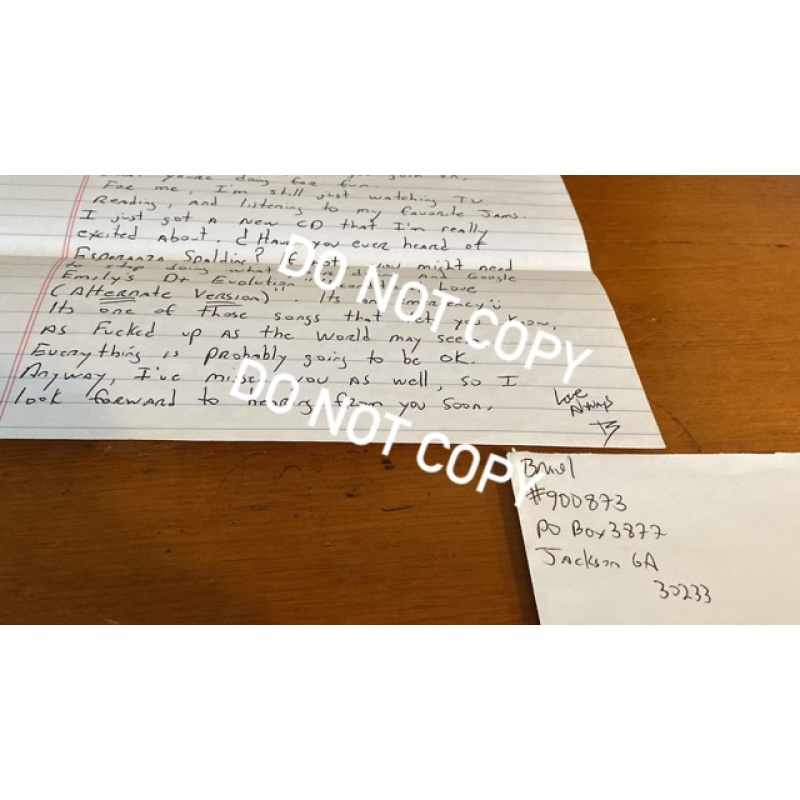 you're doing for fun.
For me, I'm still just watching TV
Reading, and listening to my favorite Jams.
I just got a new CD that I'm really
excited About. Have you ever heard of
Esperanza Spalding? If not, you might need
to stop doing what you're doing and Google
Emily's D+ Evolution" Love
(Alternate Version)". Its an emergency
Its one of those songs that let you know,
As Fucked up As the world may seem
Everything is probably going to be ok.
Anyway, I've missed you As well, so I
look forward to hearing from you soon.
Love
Always
B
DO NOT COPY
DO NOT COPY
#900873
PO Box 3877
Jackson GA
30233